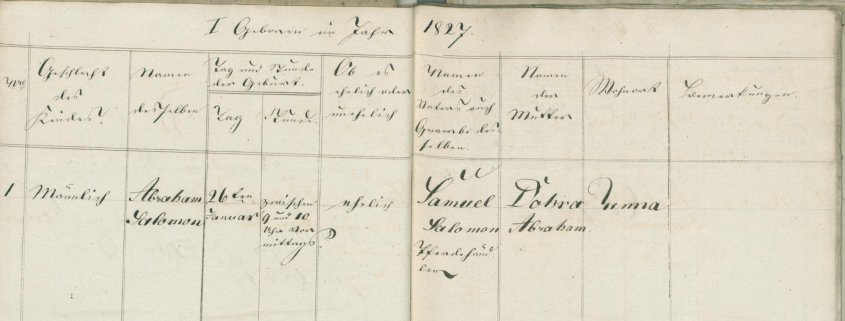 I Geboren im Jahr 1827.
Nro
Geschlecht
des
Kindes.
Namen
desselben
Tag und Stunde
der Geburt.
Tag
Stunde
Ob es
ehelich oder
unehelich
Namen
des
Vaters auch
Gewerbe des-
selben.
Namen
der
Mutter
Wohnort
Bemerkungen.
1
Männlich
Abraham
Salomon
26ten
Januar
zwischen
9 und 10
Uhr Vor
mittags.
ehelich
Samuel
Salomon
Pferdehänd
ler
Abraham.
Unna